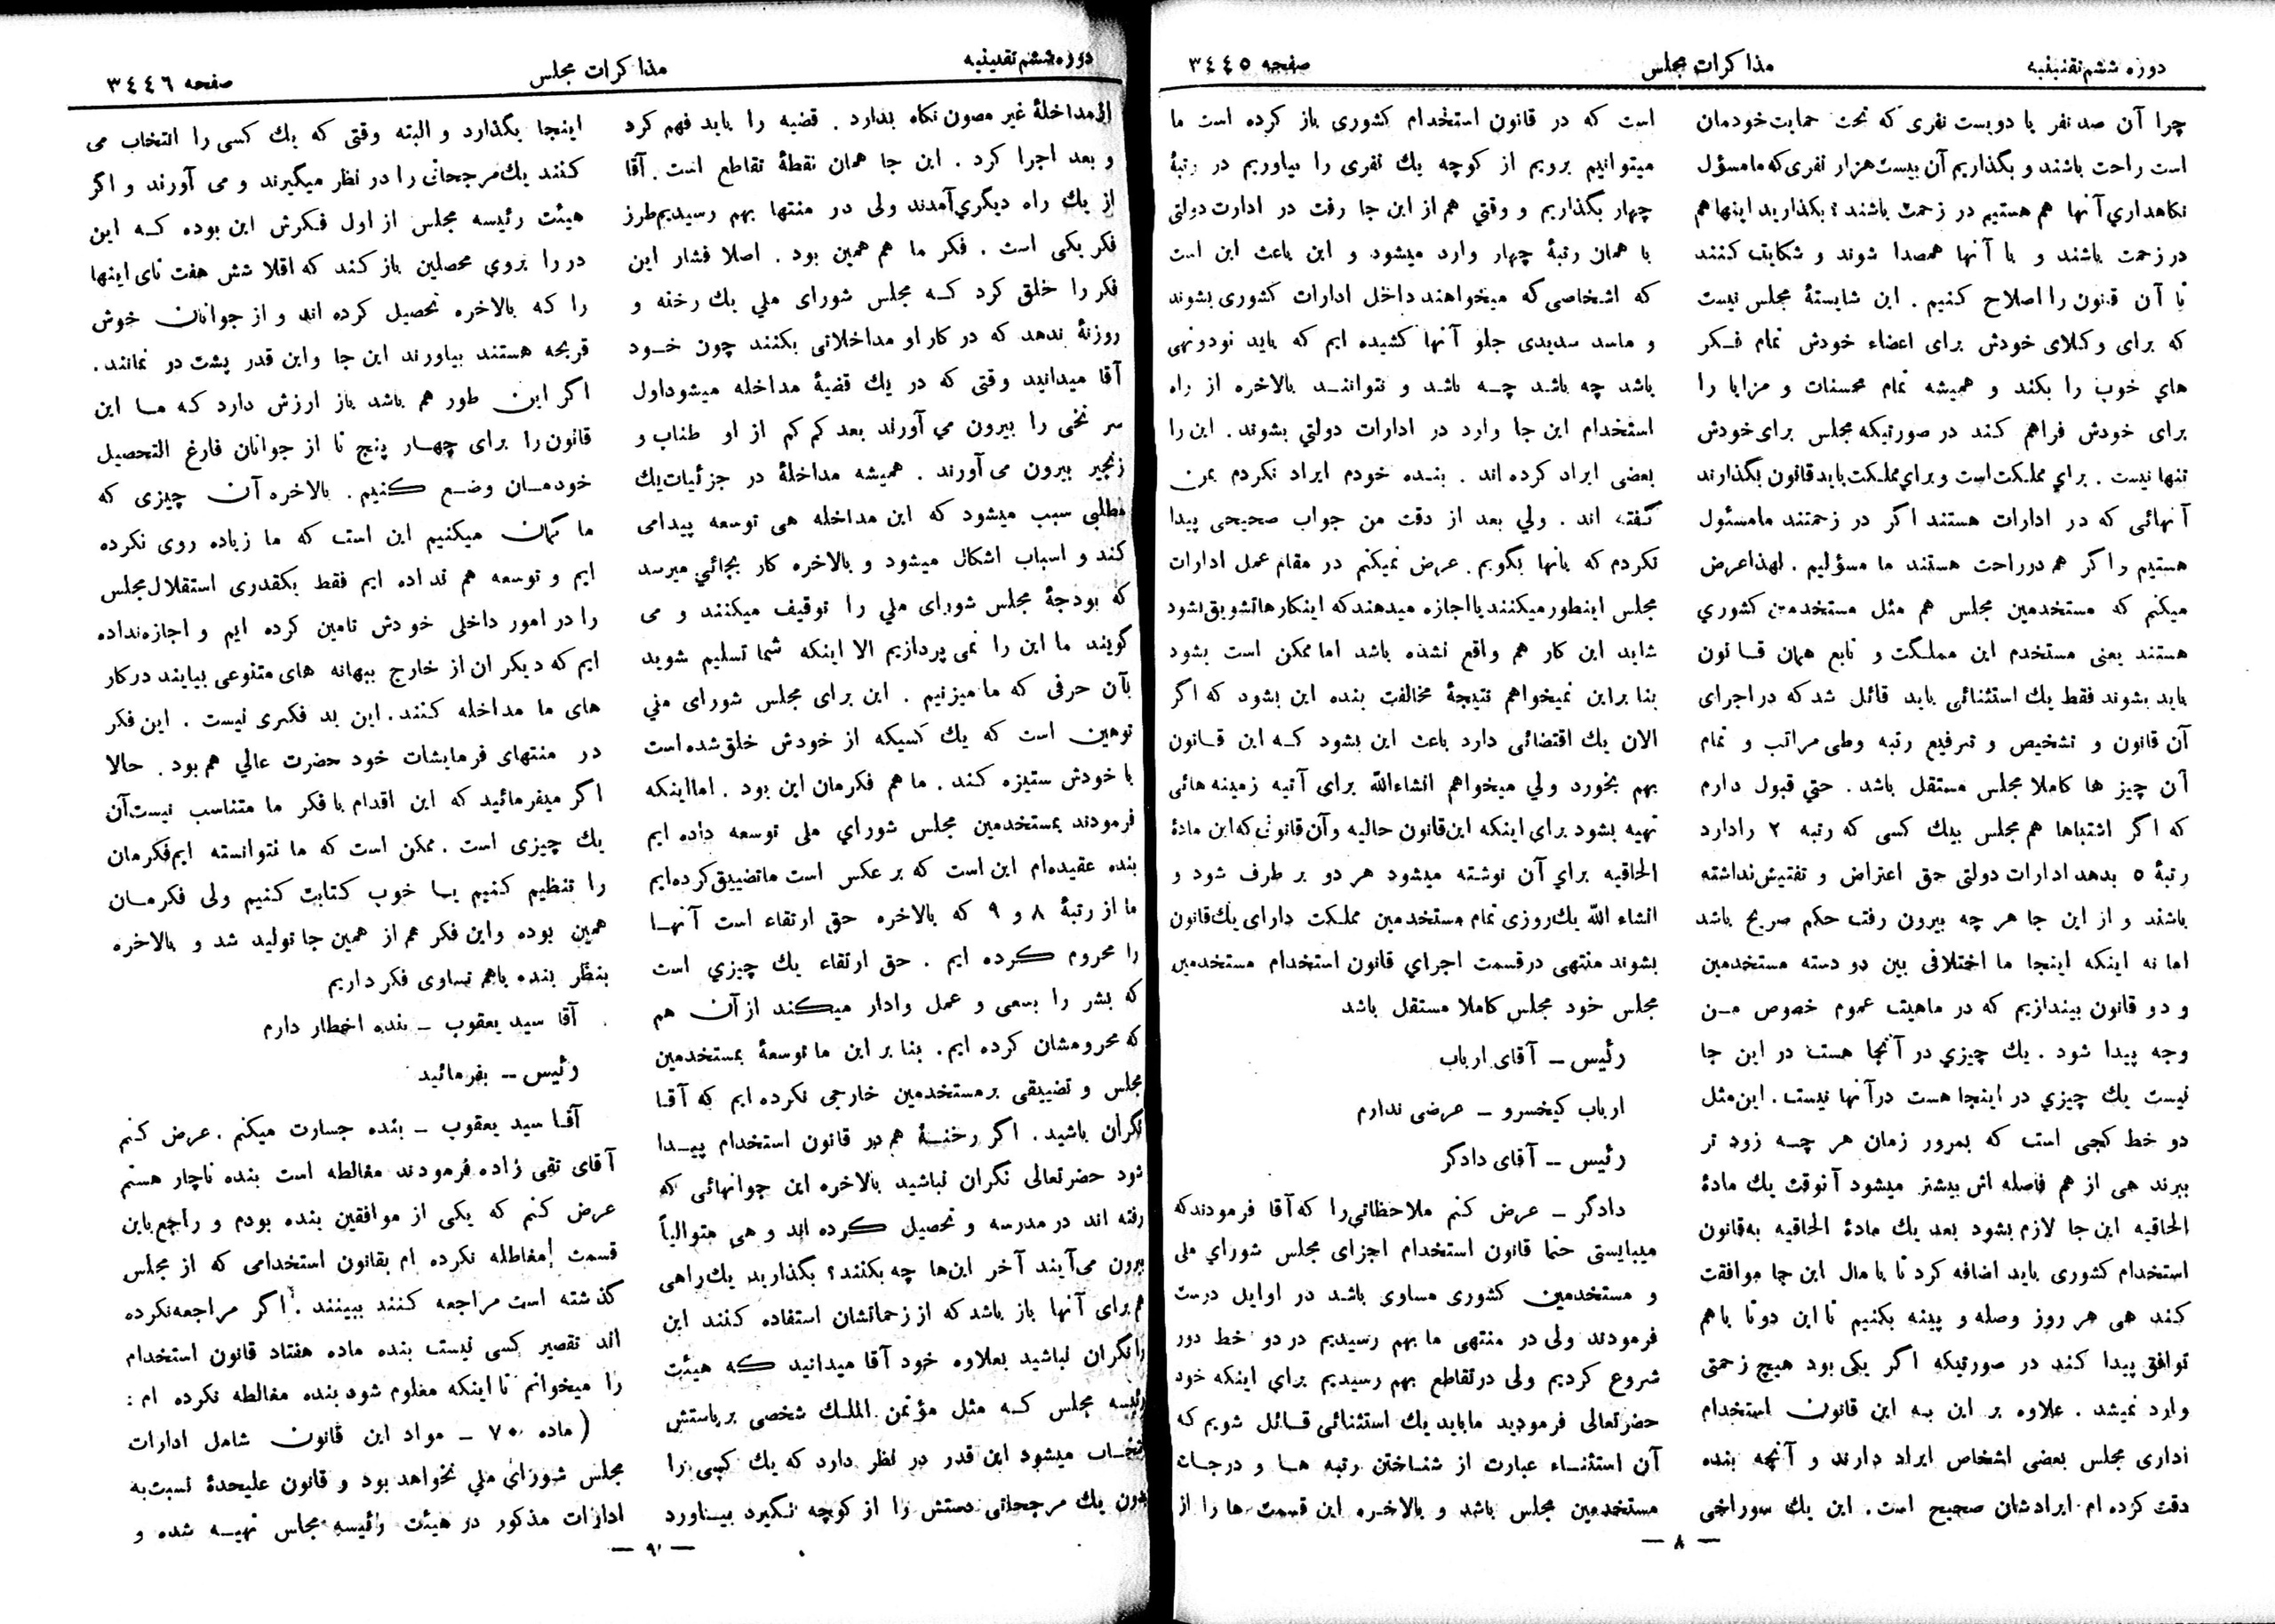 دوره ششم تقنینیه
مذاکرات مجلس
صفحه ٣٤٤٥
چرا آن صد نفر یا دویست نفری که تحت حمایت خودمان
است راحت باشند و بگذاریم آن بیست هزار نفری که ما مسؤل
نکاهداري آنها هم هستیم در زحمت باشند؟ بکذارید اینها هم
در زحمت باشند و با آنها همصدا شوند و شکایت کنند
تا آن قانون را اصلاح کنیم . این شایستۀ مجلس نیست
که برای وکلای خودش برای اعضاء خودش تمام فـکر
هاي خوب را بکند و همیشه تمام محسنات و مزایا را
برای خودش فراهم کند در صورتیکه مجلس برای خودش
تنها نیست . براي مملکت است و براي مملکت باید قانون بگذارند
آنهائی که در ادارات هستند اگر در زحمتند ما مسئول
هستیم و اکر هم در راحت هستند ما مسؤلیم . لهذا عرض
میکنم که مستخدمین مجلس هم مثل مستخدمین کشوري
هستند یعنی مستخدم این مملکت و تابع همان قـانون
باید بشوند فقط یك استثنائی باید قائل شد که در اجرای
آن قانون و تشخیص و ترفیع رتبه وطی مراتب و تمام
آن چیز ها کاملا مجلس مستقل باشد . حتي قبول دارم
که اگر اشتباها هم مجلس بیك کسی که رتبه ٢ را دارد
رتبۀ ٥ بدهد ادارات دولتی حق اعتراض و تفتیش نداشته
باشند و از این جا هر چه بیرون رفت حکم صریح باشد
اما نه اینکه اینجا ما اختلافی بین دو دسته مستخدمین
و دو قانون بیندازیم که در ماهیت عموم خصوص مـن
وجه پیدا شود . یك چیزي در آنجا هست در این جا
نیست یك چیزي در اینجا هست در آنها نیست . این مثل
دو خط کجی است که بمرور زمان هر چـه زود تر
ببرند هی از هم فاصله اش بیشتر میشود آنوقت یك مادۀ
الحاقیه این جا لازم بشود بعد یك مادۀ الحاقیه به قانون
استخدام کشوری باید اضافه کرد تا با مال این جا موافقت
کند هی هر روز وصله و پینه بکنیم تا این دوتا با هم
توافق پیدا کند در صورتیکه اگر یکی بود هیچ زحمتی
وارد نمیشد . علاوه بر این به این قانون استخدام
اداری مجلس بعضی اشخاص ایراد دارند و آنچه بنده
دقت کرده ام ایرادشان صحیح است . این یك سوراخی
است که در قانون استخدام کشوری باز کرده است ما
میتوانیم برویم از کوچه یك نفری را بیاوریم در رتبۀ
چهار بگذاریم و وقتي هم از این جا رفت در ادارت دولتی
با همان رتبۀ چهار وارد میشود و این باعث این است
که اشخاصی که میخواهند داخل ادارات کشوری بشوند
و ما سد سدیدی جلو آنها کشیده ایم که باید نودونهی
باشد چه باشد چـه باشد و نتوانند بالاخره از راه
استخدام این جا وارد در ادارات دولتي بشوند . این را
بعضی ایراد کرده اند . بنده خودم ایراد نکردم بمن
گفته اند . ولي بعد از دقت من جواب صحیحی پیدا
نکردم که بآنها بگویم . عرض نمیکنم در مقام عمل ادارات
مجلس اینطور میکنند یا اجازه میدهند که اینکارها تشویق بشود
شاید این کار هم واقع نشده باشد اما ممکن است بشود
بنا براین نمیخواهم نتیجۀ مخالفت بنده این بشود که اگر
الان یك اقتضائی دارد باعث این بشود کـه این قـانون
بهم بخورد ولي میخواهم انشاءالله برای آتیه زمینه هائی
تهیه بشود برای اینکه این قانون حالیه و آن قانونی که این مادۀ
الحاقیه براي آن نوشته میشود هر دو بر طرف شود و
انشاء الله یك روزی تمام مستخدمین مملکت دارای یك قانون
بشوند منتهی در قسمت اجراي قانون استخدام مستخدمین
مجلس خود مجلس کاملا مستقل باشد
رئیس ــ آقای ارباب
ارباب کیخسرو ــ عرضی ندارم
رئیس ــ آقای دادکر
دادگر ــ عرض کنم ملاحظاتي را که آقا فرمودند که
میبایستی حتما قانون استخدام اجزای مجلس شوراي ملی
و مستخدمین کشوری مساوی باشد در اوایل درست
فرمودند ولی در منتهی ما بهم رسیدیم در دو خط دور
شروع کردیم ولی در تقاطع بهم رسیدیم براي اینکه خود
حضرتعالی فرمودید ما باید یك استثنائی قـائل شویم که
آن استثناء عبارت از شناختن رتبه هـا و درجات
مستخدمین مجلس باشد و بالاخره این قسمت ها را از
— ٨ —
دوره ششم تقنینیه
مذاکرات مجلس
صفحه ٣٤٤٦
از مداخلۀ غیر مصون نکاه بدارد . قضیه را باید فهم کرد
و بعد اجرا کرد . این جا همان نقطۀ تقاطع است . آقا
از یك راه دیگري آمدند ولی در منتها بهم رسیدیم طرز
فکر یکی است . فکر ما هم همین بود . اصلا فشار این
فکر را خلق کرد کـه مجلس شورای ملي یك رخنه و
روزنۀ بدهد که در کار او مداخلاتی بکنند چون خـود
آقا میدانید وقتی که در یك قضیۀ مداخله میشود اول
سر نخی را بیرون مي آورند بعد کم کم از او طناب و
زنجیر بیرون می آورند . همیشه مداخلۀ در جزئیات یك
مطلبی سبب میشود که این مداخله هی توسعه پیدا می
کند و اسباب اشکال میشود و بالاخره کار بجائي میرسد
که بودجۀ مجلس شورای ملي را توقیف میکنند و می
گویند ما این را نمی پردازیم الا اینکه شما تسلیم شوید
بآن حرفی که ما میزنیم . این برای مجلس شورای ملي
توهین است که یك کسیکه از خودش خلق شده است
با خودش ستیزه کند . ما هم فکرمان این بود . اما اینکه
فرمودند بمستخدمین مجلس شوراي ملی توسعه داده ایم
بنده عقیده ام این است که بر عکس است ما تضییق کرده ایم
ما از رتبۀ ٨ و ٩ که بالاخره حق ارتقاء است آنهـا
را محروم کرده ایم . حق ارتقاء یك چیزي است
که بشر را بسعی و عمل وادار میکند از آن هم
که محرومشان کرده ایم . بنا بر این ما توسعۀ بمستخدمین
مجلس و تضییقی بر مستخدمین خارجی نکرده ایم که آقـا
نگران باشید . اگر رخنـۀ هم در قانون استخدام پیـدا
شود حضرتعالی نگران نباشید بالاخره این جوانهائی که
رفته اند در مدرسه و تحصیل کرده اند و هی متوالیاً
بیرون می آیند آخر این ها چه بکنند؟ بگذارید یك راهی
هم برای آنها باز باشد که از زحماتشان استفاده کنند این
را نگران نباشید بعلاوه خود آقا میدانید کـه هیئت
رئیسه مجلس کـه مثل مؤتمن الملك شخصی بریاستش
انتخاب میشود این قدر در نظر دارد که یك کسی را
بدون یك مرجحانی دستش را از کوچه نـگیرد بیـاورد
اینجا بگذارد و البته وقتی که یك کسی را انتخاب می
کنند یك مرجحاتی را در نظر میگیرند و می آورند و اگر
هیئت رئیسه مجلس از اول فـکرش این بوده کـه این
در را بروي محصلین باز کند که اقلا شش هفت تای اینها
را که بالاخره تحصیل کرده اند و از جوانان خوش
قریحه هستند بیاورند این جا و این قدر پشت در نمانند .
اگر این طور هم باشد باز ارزش دارد که مـا این
قانون را برای چهـار پنج تا از جوانان فارغ التحصیل
خودمـان وضـع کنیم . بالاخره آن چیزی که
ما گمان میکنیم این است که ما زیاده روی نکرده
ایم و توسعه هم نداده ایم فقط یکقدری استقلال مجلس
را در امور داخلی خودش تامین کرده ایم و اجازه نداده
ایم که دیکران از خارج ببهانه های متنوعی بیایند در کار
های ما مداخله کنند . این بد فکری نیست . این فکر
در منتهای فرمایشات خود حضرت عالي هم بود . حالا
اگر میفرمائید که این اقدام با فکر ما متناسب نیست آن
یك چیزی است . ممکن است که ما نتوانسته ایم فکرمان
را تنظیم کنیم یـا خوب کتابت کنیم ولی فکرمـان
همین بوده و این فکر هم از همین جا تولید شد و بالاخره
بنظر بنده باهم تساوی فکر داریم
آقا سید یعقوب ــ بنده اخطار دارم
رئیس ــ بفرمائید
آقـا سید یعقوب ــ بنده جسارت میکنم . عرض کنم
آقای تقی زاده فرمودند مغالطه است بنده ناچار هستم
عرض کنم که یکی از موافقین بنده بودم و راجع باین
قسمت مغاطله نکرده ام بقانون استخدامی که از مجلس
کذشته است مراجعه کنند ببینند . اکر مراجعه نکرده
اند تقصیر کسی نیست بنده ماده هفتاد قانون استخدام
را میخوانم تا اینکه معلوم شود بنده مغالطه نکرده ام :
( ماده ٧٠ ــ مواد این قانون شامل ادارات
مجلس شورای ملي نخواهد بود و قانون علیحدۀ نسبت به
ادارات مذکور در هیئت رئیسه مجلس تهیـه شده و
— ٩ —